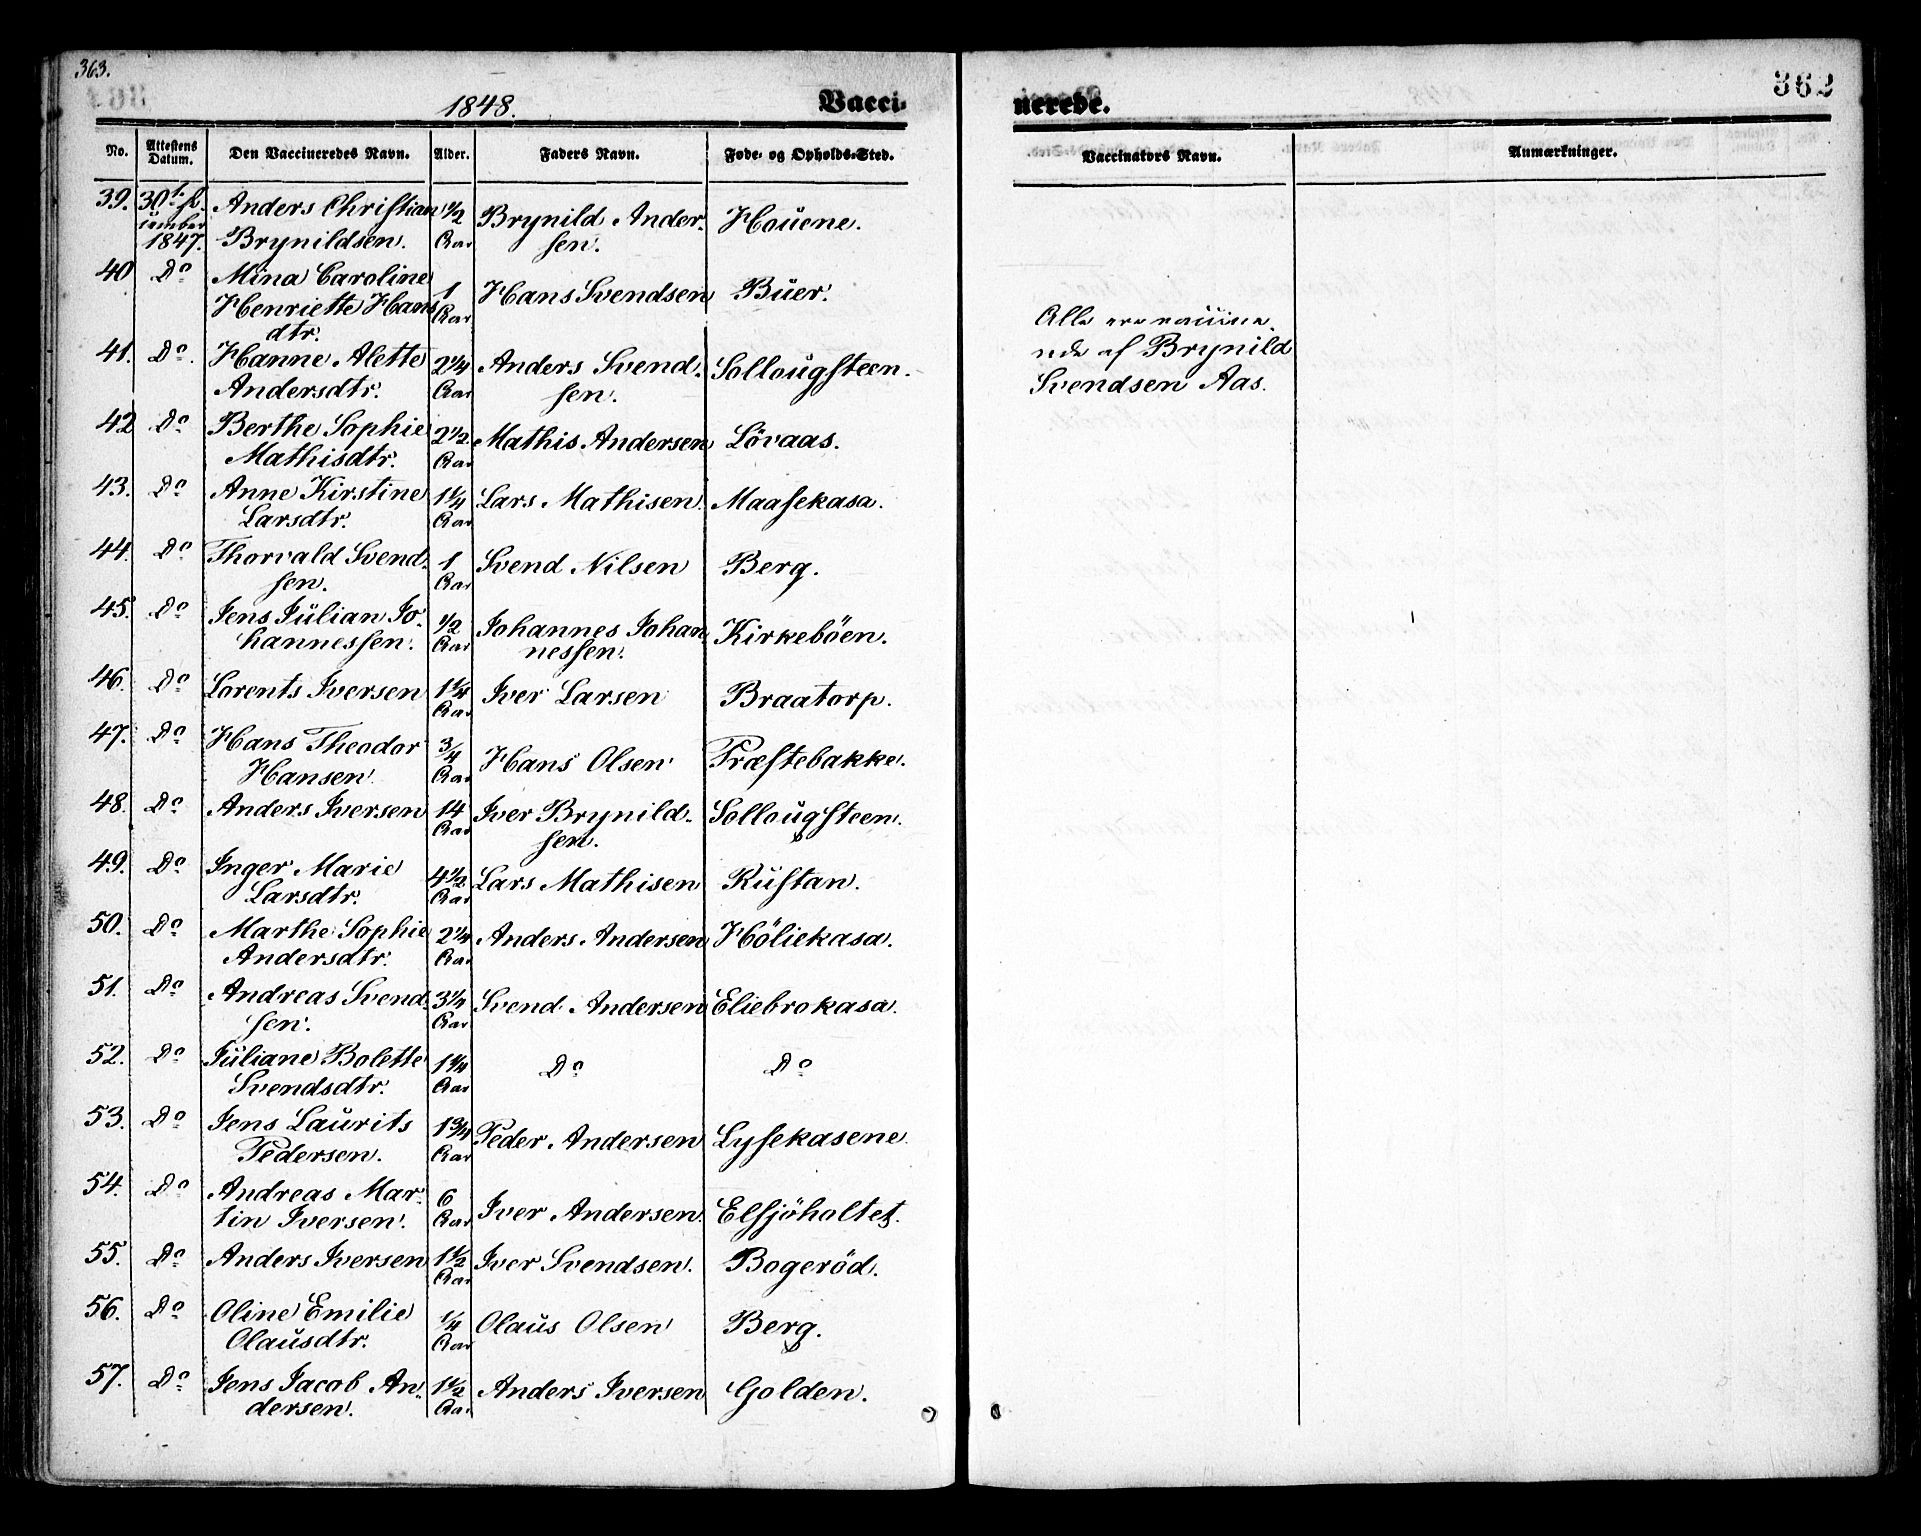 363.
362
1848.
Vacci-
nerede.
No. Attestens Datum. Den Vaccineredes Navn. Alder. Faders Navn. Føde- og Opholds-Sted. Vaccinators Navn. Anmærkninger.
39. 30t Anders Christian 1/2 Brynild Ander- Houene.
1847. Brynildsen. Aar sen.
40 Do Mina Caroline 1 Hans Svendsen Büer.
Henriette Hans Aar
dtr.
Alle ere vaccine-
rede af Brynild
Svendsen Aas.
41. Do. Hanne Alette 2 1/4 Anders Svend- Sollougsteen.
Andersdtr. Aar sen.
42 Do Berthe Sophie 2 1/2 Mathis Andersen Lövaas.
Mathisdtr. Aar
43. Do Anne Kirstine 1 1/4 Lars Mathisen Maasekasa.
Larsdtr. Aar
44. Do Thorvald Svend- 1 Svend Nilsen Berg.
sen. Aar
45. Do Jens Julian Jo- 1/2 Johannes Johan- Kirkebøen.
hannessen. Aar nessen.
46. Do Lorents Iversen 1 1/4 Iver Larsen Braatorp.
Aar
47. Do Hans Theodor 3/4 Hans Olsen Præstebakke.
Hansen Aar
48. Do Anders Iversen 14 Iver Brynild- Sollougsteen.
Aar sen.
49. Do Inger Marie 4 1/2 Lars Mathisen Rustan.
Larsdtr. Aar
50. Do Marthe Sophie 2 1/4 Anders Andersen Höliekasa.
Andersdtr. Aar
51. Do Andreas Svend- Svend Andersen Eliebrokasa.
sen. Aar
52. Do Juliane Bolette Do Do
Svendsdtr. Aar
53. Do Jens Laurits 1 3/4 Peder Andersen Lysekasene
Pedersen. Aar
54. Do Andreas Mar- 6 Iver Andersen. Elsjöholtet.
tin Iversen. Aar
55. Do Anders Iversen 1 1/2 Iver Svendsen. Bogeröd.
Aar
56. Do Oline Emilie 1/4 Olaus Olsen Berg.
Olausdtr. Aar
57. Do Jens Jacob An- 1 1/2 Anders Iversen Golden.
dersen. Aar